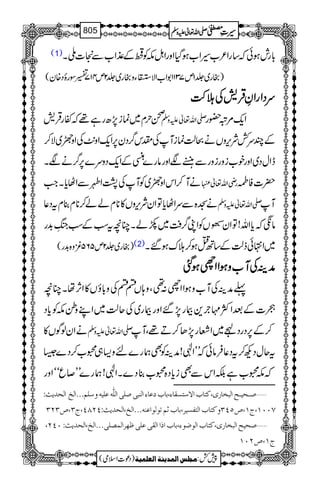 سیرتِ مصطفی صلی اللہ تعالیٰ علیہ وسلم
805
بارش ہوئی کہ سارا عرب سیراب ہوگیا اور اہل مکہ کو قحط کے عذاب سے نجات ملی۔(1)
(بخاری جلد۱ ص۱۳۷ ابواب الاستسقاء و بخاری جلد۲ ص۷۱۴ تفسیر سورۂ دخان)
سردارانِ قریش کی ہلاکت
ایک مرتبہ حضور صلی اللہ تعالیٰ علیہ وسلم صحن حرم میں نماز پڑھ رہے تھے کہ کفار قریش
کے چند سرکش شریروں نے بحالت نماز آپ کی مقدس گردن پر ایک اونٹ کی اوجھڑی لا کر
ڈال دی اور خوب زور زور سے ہنسنے لگے اور مارے ہنسی کے ایک دوسرے پر گرنے لگے۔
حضرت فاطمہ رضی اللہ تعالیٰ عنہا نے آ کر اس اوجھڑی کو آپ کی پشت اطہر سے اٹھایا۔ جب
آپ صلی اللہ تعالیٰ علیہ وسلم نے سجدہ سے سر اٹھایا تو ان شریروں کا نام لے لے کر نام بنام یہ دعا
مانگی کہ یا اللہ! تو ان سبھوں کو اپنی گرفت میں پکڑ لے۔ چنانچہ یہ سب کے سب جنگ بدر
میں انتہائی ذلت کے ساتھ قتل ہو کر ہلاک ہو گئے۔(2) (بخاری جلد۲ ص۵۶۵ غزوۂ بدر)
مدینہ کی آب و ہوا اچھی ہوگئی
پہلے مدینہ کی آب و ہوا اچھی نہ تھی، وہاں قسم قسم کی وباؤں کا اثر تھا۔ چنانچہ
ہجرت کے بعد اکثر مہاجرین بیمار پڑ گئے اور بیماری کی حالت میں اپنے وطن مکہ کو یاد
کر کے پردرد لہجے میں اشعار پڑھا کرتے تھے، آپ صلی اللہ تعالیٰ علیہ وسلم نے ان لوگوں کا
یہ حال دیکھ کر یہ دعا فرمائی کہ ''الٰہی! مدینہ کو بھی ہمارے لئے ویسا ہی محبوب کر دے جیسا
کہ مکہ محبوب ہے بلکہ اس سے بھی زیادہ محبوب بنا دے۔ الٰہی! ہمارے ''صاع'' اور
......صحیح البخاری،کتاب الاستسقاء،باب دعاء النبی صلی اللہ علیہ وسلم...الخ،الحدیث:
۱۰۰۷،ج۱،ص۳۴۵وکتاب التفسیر،باب ثم تولوا عنہ...الخ،الحدیث:۴۸۲۴،ج۳،ص۳۲۳
......صحیح البخاری،کتاب الوضوء،باب اذا القی علی ظھرالمصلی...الخ،الحدیث: ۲۴۰،
ج۱،ص۱۰۲
پیش کش: مجلس المدینۃ العلمیۃ (دعوتِ اسلامی)